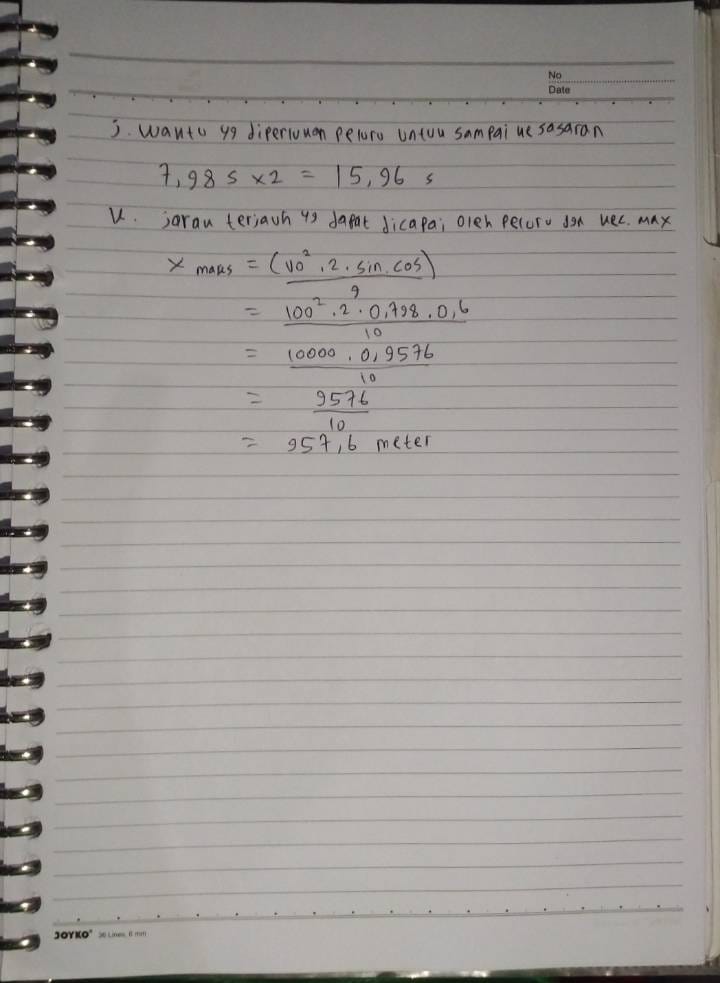 No
Date
j. Waktu yg diperlukan peluru untuk sampai ke sasaran
7,98 s x 2 = 15,96 s
k. jarak terjauh yg dapat dicapai oleh peluru dgn kec. max
X maks = (vo². 2. sin. cos)
g
= 100². 2. 0,798. 0,6
10
= 10000. 0,9576
10
= 9576
10
= 957,6 meter
JOYKO® 36 Lines, 6 mm